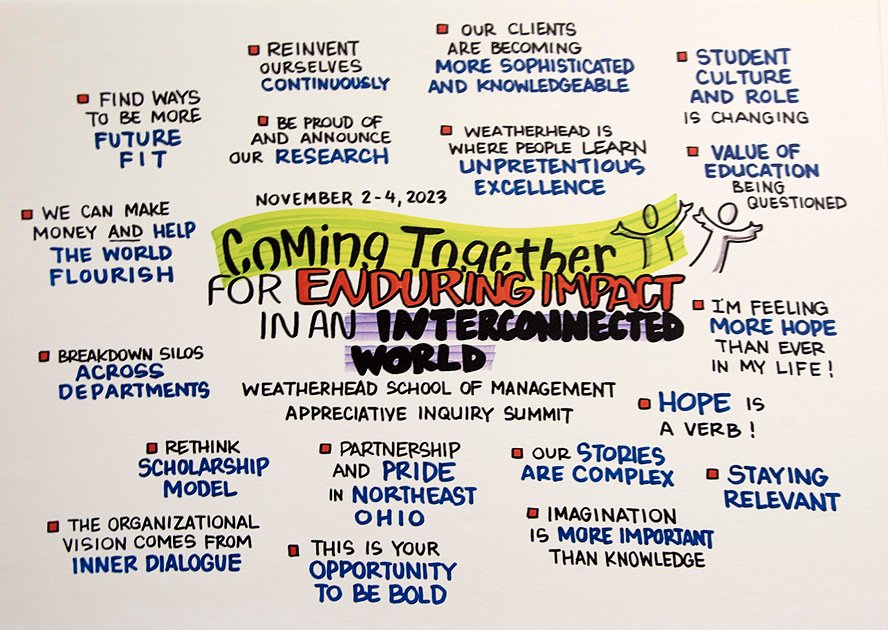 REINVENT
OURSELVES
CONTINUOUSLY
OUR CLIENTS
ARE BECOMING
MORE SOPHISTICATED
AND KNOWLEDGEABLE
STUDENT
CULTURE
AND ROLE
IS CHANGING
FIND WAYS
TO BE MORE
FUTURE
FIT
BE PROUD OF
AND ANNOUNCE
OUR RESEARCH
WEATHERHEAD IS
WHERE PEOPLE LEARN
UNPRETENTIOUS
EXCELLENCE
VALUE OF
EDUCATION
BEING
QUESTIONED
WE CAN MAKE
MONEY AND HELP
THE WORLD
FLOURISH
NOVEMBER 2-4, 2023
COMING TOGETHER
FOR ENDURING IMPACT
IN AN INTERCONNECTED
WORLD
WEATHERHEAD SCHOOL OF MANAGEMENT
APPRECIATIVE INQUIRY SUMMIT
I'M FEELING
MORE HOPE
THAN EVER
IN MY LIFE!
BREAKDOWN SILOS
ACROSS
DEPARTMENTS
HOPE IS
A VERB!
RETHINK
SCHOLARSHIP
MODEL
PARTNERSHIP
AND PRIDE
IN NORTHEAST
OHIO
OUR STORIES
ARE COMPLEX
STAYING
RELEVANT
THE ORGANIZATIONAL
VISION COMES FROM
INNER DIALOGUE
THIS IS YOUR
OPPORTUNITY
TO BE BOLD
IMAGINATION
IS MORE IMPORTANT
THAN KNOWLEDGE